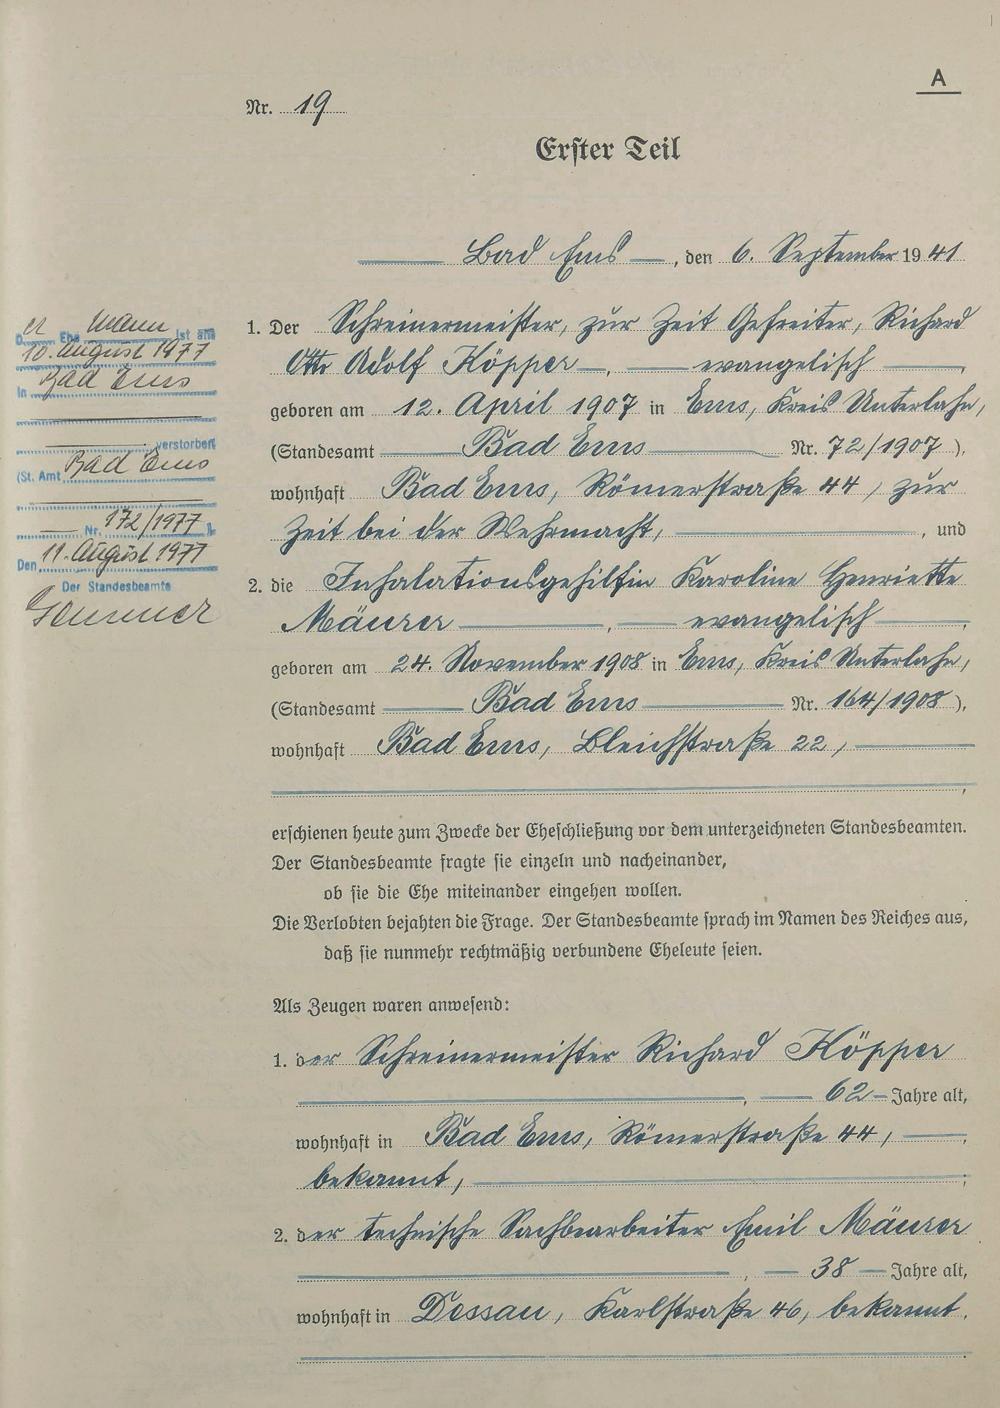 A
Nr. 19
Erster Teil
Bad Ems, den 6. September 1941
1. Der Schreinermeister, zur Zeit Gefreiter, Richard
Otto Adolf Köpper, evangelisch,
geboren am 12. April 1907 in Ems, Kreis Unterlahn,
(Standesamt Bad Ems Nr. 72/1907),
wohnhaft Bad Ems, Römerstraße 44, zur
Zeit bei der Wehrmacht, , und
2. die Inhalationsgehilfin Karoline Henriette
Mäurer, evangelisch,
geboren am 24. November 1908 in Ems, Kreis Unterlahn,
(Standesamt Bad Ems Nr. 164/1908),
wohnhaft Bad Ems, Bleichstraße 22,
erschienen heute zum Zwecke der Eheschließung vor dem unterzeichneten Standesbeamten.
Der Standesbeamte fragte sie einzeln und nacheinander,
ob sie die Ehe miteinander eingehen wollen.
Die Verlobten bejahten die Frage. Der Standesbeamte sprach im Namen des Reiches aus,
daß sie nunmehr rechtmäßig verbundene Eheleute seien.
Als Zeugen waren anwesend:
1. der Schreinermeister Richard Köpper
, 62 Jahre alt,
wohnhaft in Bad Ems, Römerstraße 44,
bekannt, ;
2. der technische Sachbearbeiter Emil Mäurer
, 38 Jahre alt,
wohnhaft in Dessau, Karlstraße 46, bekannt.
Der Ehemann ist am
10. August 1977
in Bad Ems
verstorben
(St. Amt Bad Ems
Nr. 172/1977).
Den 11. August 1977
Der Standesbeamte